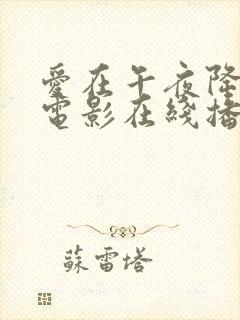 愛在午夜降
電影在綫播
蘇雷塔